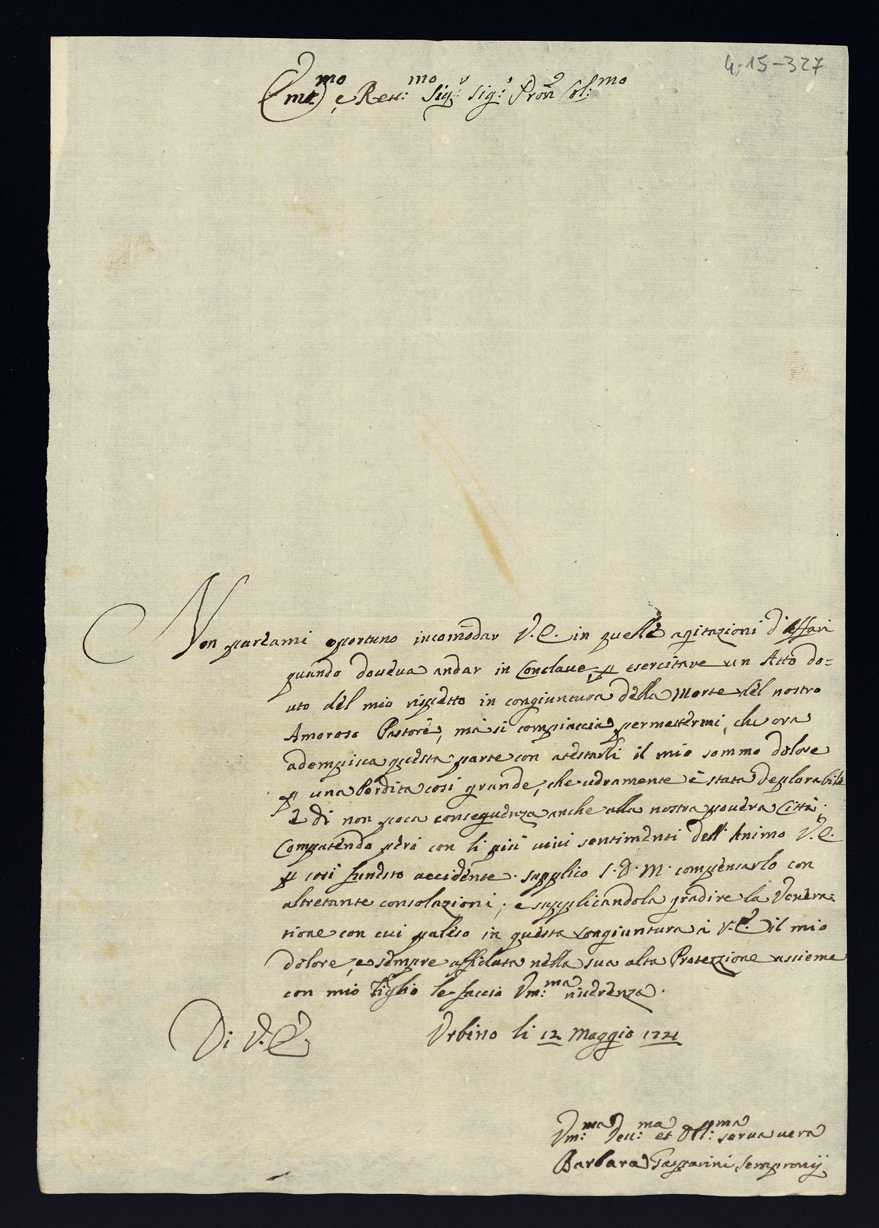 4-15-327
Em.mo e Reu:mo Sig.r Sig.r Pron Col:mo
Non paréami oportuno incomodar V.E. in quelle agitazioni d'affari
quando doueua andar in Conclaue p esercitare un Atto do=
uto del mio rispetto in congiuntura della Morte del nostro
Amoroso Pastore, mà si compiaccia permettermi, che ora
adempisca questa parte con attestarli il mio sommo dolore
p una perdita così grande, che ueramente è stata deplorabile
e di non poca conseguenza anche alla nostra pouera Città;
Compatendo però con li più uiui sentimenti dell'Animo V.E.
p così funesto accidente. supplico S.D.M. compensarlo con
altretante consolazioni; e supplicandola gradire la Venera=
zione con cui paleso in questa congiuntura à V.E. il mio
dolore, e sempre affidata nella sua alta Protezzione assieme
con mio figlio le faccio Vm:ma riuerenza.
Di V.E. Vrbino li 12 Maggio 1721
Vm:ma Deu:ma et Obl:ma serua uera
Barbara Gasparini Sempronij